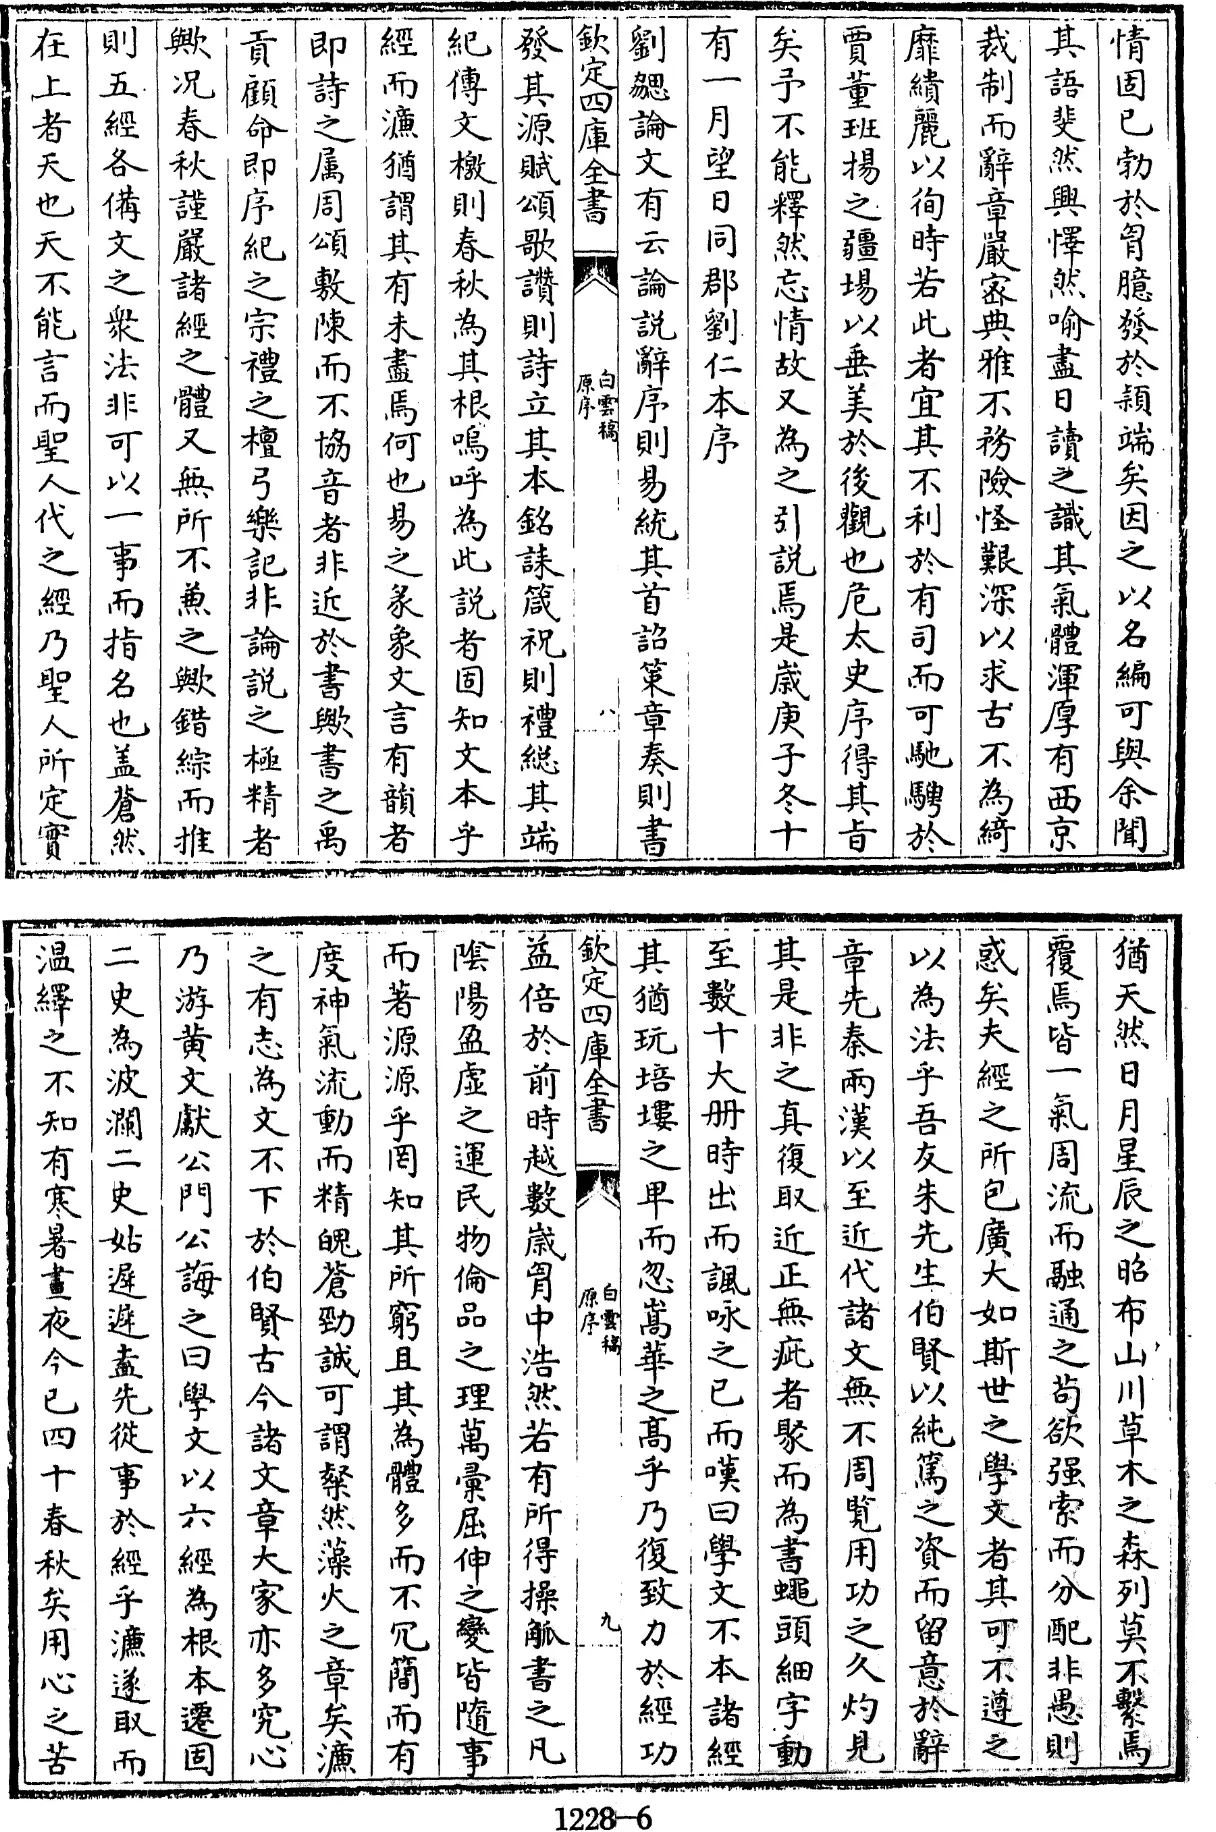 情固已勃於胷臆發於頴端矣因之以名編可與余聞
其語斐然興懌然喻盡日讀之識其氣體渾厚有西京
裁制而辭章嚴密典雅不務險怪艱深以求古不為綺
靡繢麗以徇時若此者宜其不利於有司而可馳騁於
賈董班揚之疆場以垂美於後觀也危太史序得其旨
矣予不能釋然忘情故又為之引説焉是嵗庚子冬十
有一月望日同郡劉仁本序
劉勰論文有云論説辭序則易統其首詔策章奏則書
欽定四庫全書
白雲稿
原序
八
發其源賦頌歌讚則詩立其本銘誄箴祝則禮緫其端
紀傳文檄則春秋為其根嗚呼為此説者固知文本乎
經而濂猶謂其有未盡焉何也易之彖象文言有韻者
即詩之属周頌敷陳而不協音者非近於書歟書之禹
貢顧命即序紀之宗禮之檀弓樂記非論説之極精者
歟况春秋謹嚴諸經之體又無所不兼之歟錯綜而推
則五經各備文之衆法非可以一事而指名也盖蒼然
在上者天也天不能言而聖人代之經乃聖人所定實
猶天然日月星辰之昭布山川草木之森列莫不繫焉
覆焉皆一氣周流而融通之苟欲强索而分配非愚則
惑矣夫經之所包廣大如斯世之學文者其可不遵之
以為法乎吾友朱先生伯賢以純篤之資而留意於辭
章先秦兩漢以至近代諸文無不周覧用功之久灼見
其是非之真復取近正無疵者聚而為書蠅頭細字動
至數十大册時出而諷咏之已而嘆曰學文不本諸經
其猶玩培塿之卑而忽嵩華之髙乎乃復致力於經功
欽定四庫全書
白雲稿
原序
九
益倍於前時越數嵗胷中浩然若有所得操觚書之凡
陰陽盈虛之運民物倫品之理萬彚屈伸之變皆隨事
而著源源乎罔知其所窮且其為體多而不冗簡而有
度神氣流動而精魄蒼勁誠可謂粲然藻火之章矣濂
之有志為文不下於伯賢古今諸文章大家亦多究心
乃游黄文獻公門公誨之曰學文以六經為根本遷固
二史為波瀾二史姑遲遲盍先從事於經乎濂遂取而
温繹之不知有寒暑晝夜今已四十春秋矣用心之苦
1228—6